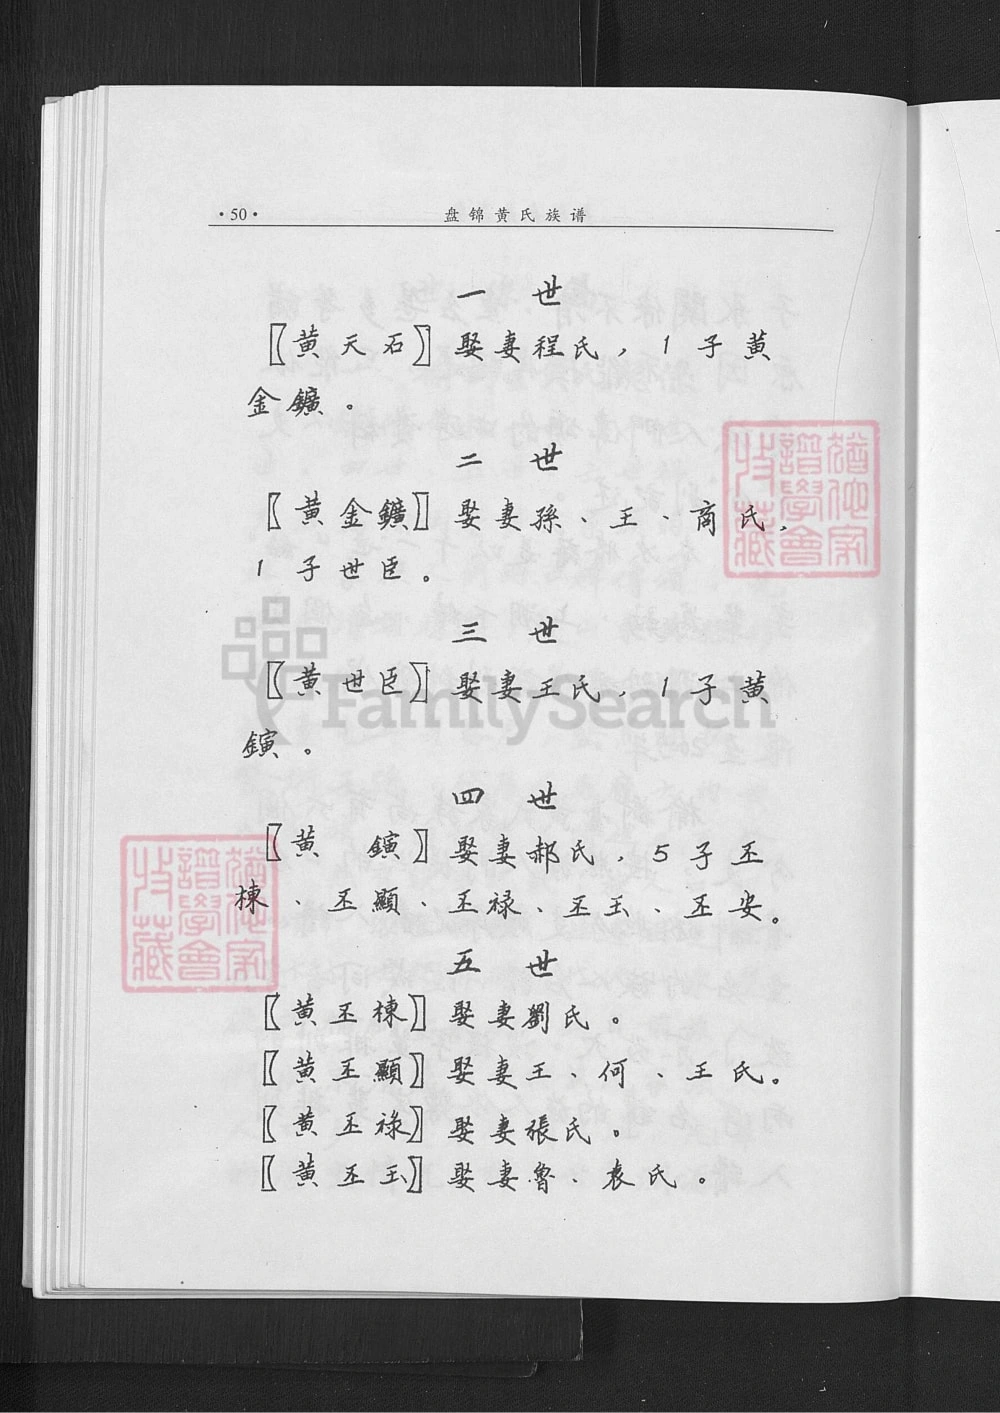 ·50·
盘锦黄氏族谱
一世
〖黄天石〗娶妻程氏，1子黄
金鑛。
二世
〖黄金鑛〗娶妻孫、王、商氏，
1子世臣。
三世
〖黄世臣〗娶妻王氏，1子黄
鑌。
四世
〖黄鑌〗娶妻郝氏，5子丕
棟、丕顯、丕禄、丕玉、丕安。
五世
〖黄丕棟〗娶妻劉氏。
〖黄丕顯〗娶妻王、何、王氏。
〖黄丕禄〗娶妻張氏。
〖黄丕玉〗娶妻魯、袁氏。
FamilySearch
譜學會
收藏
譜學會
收藏